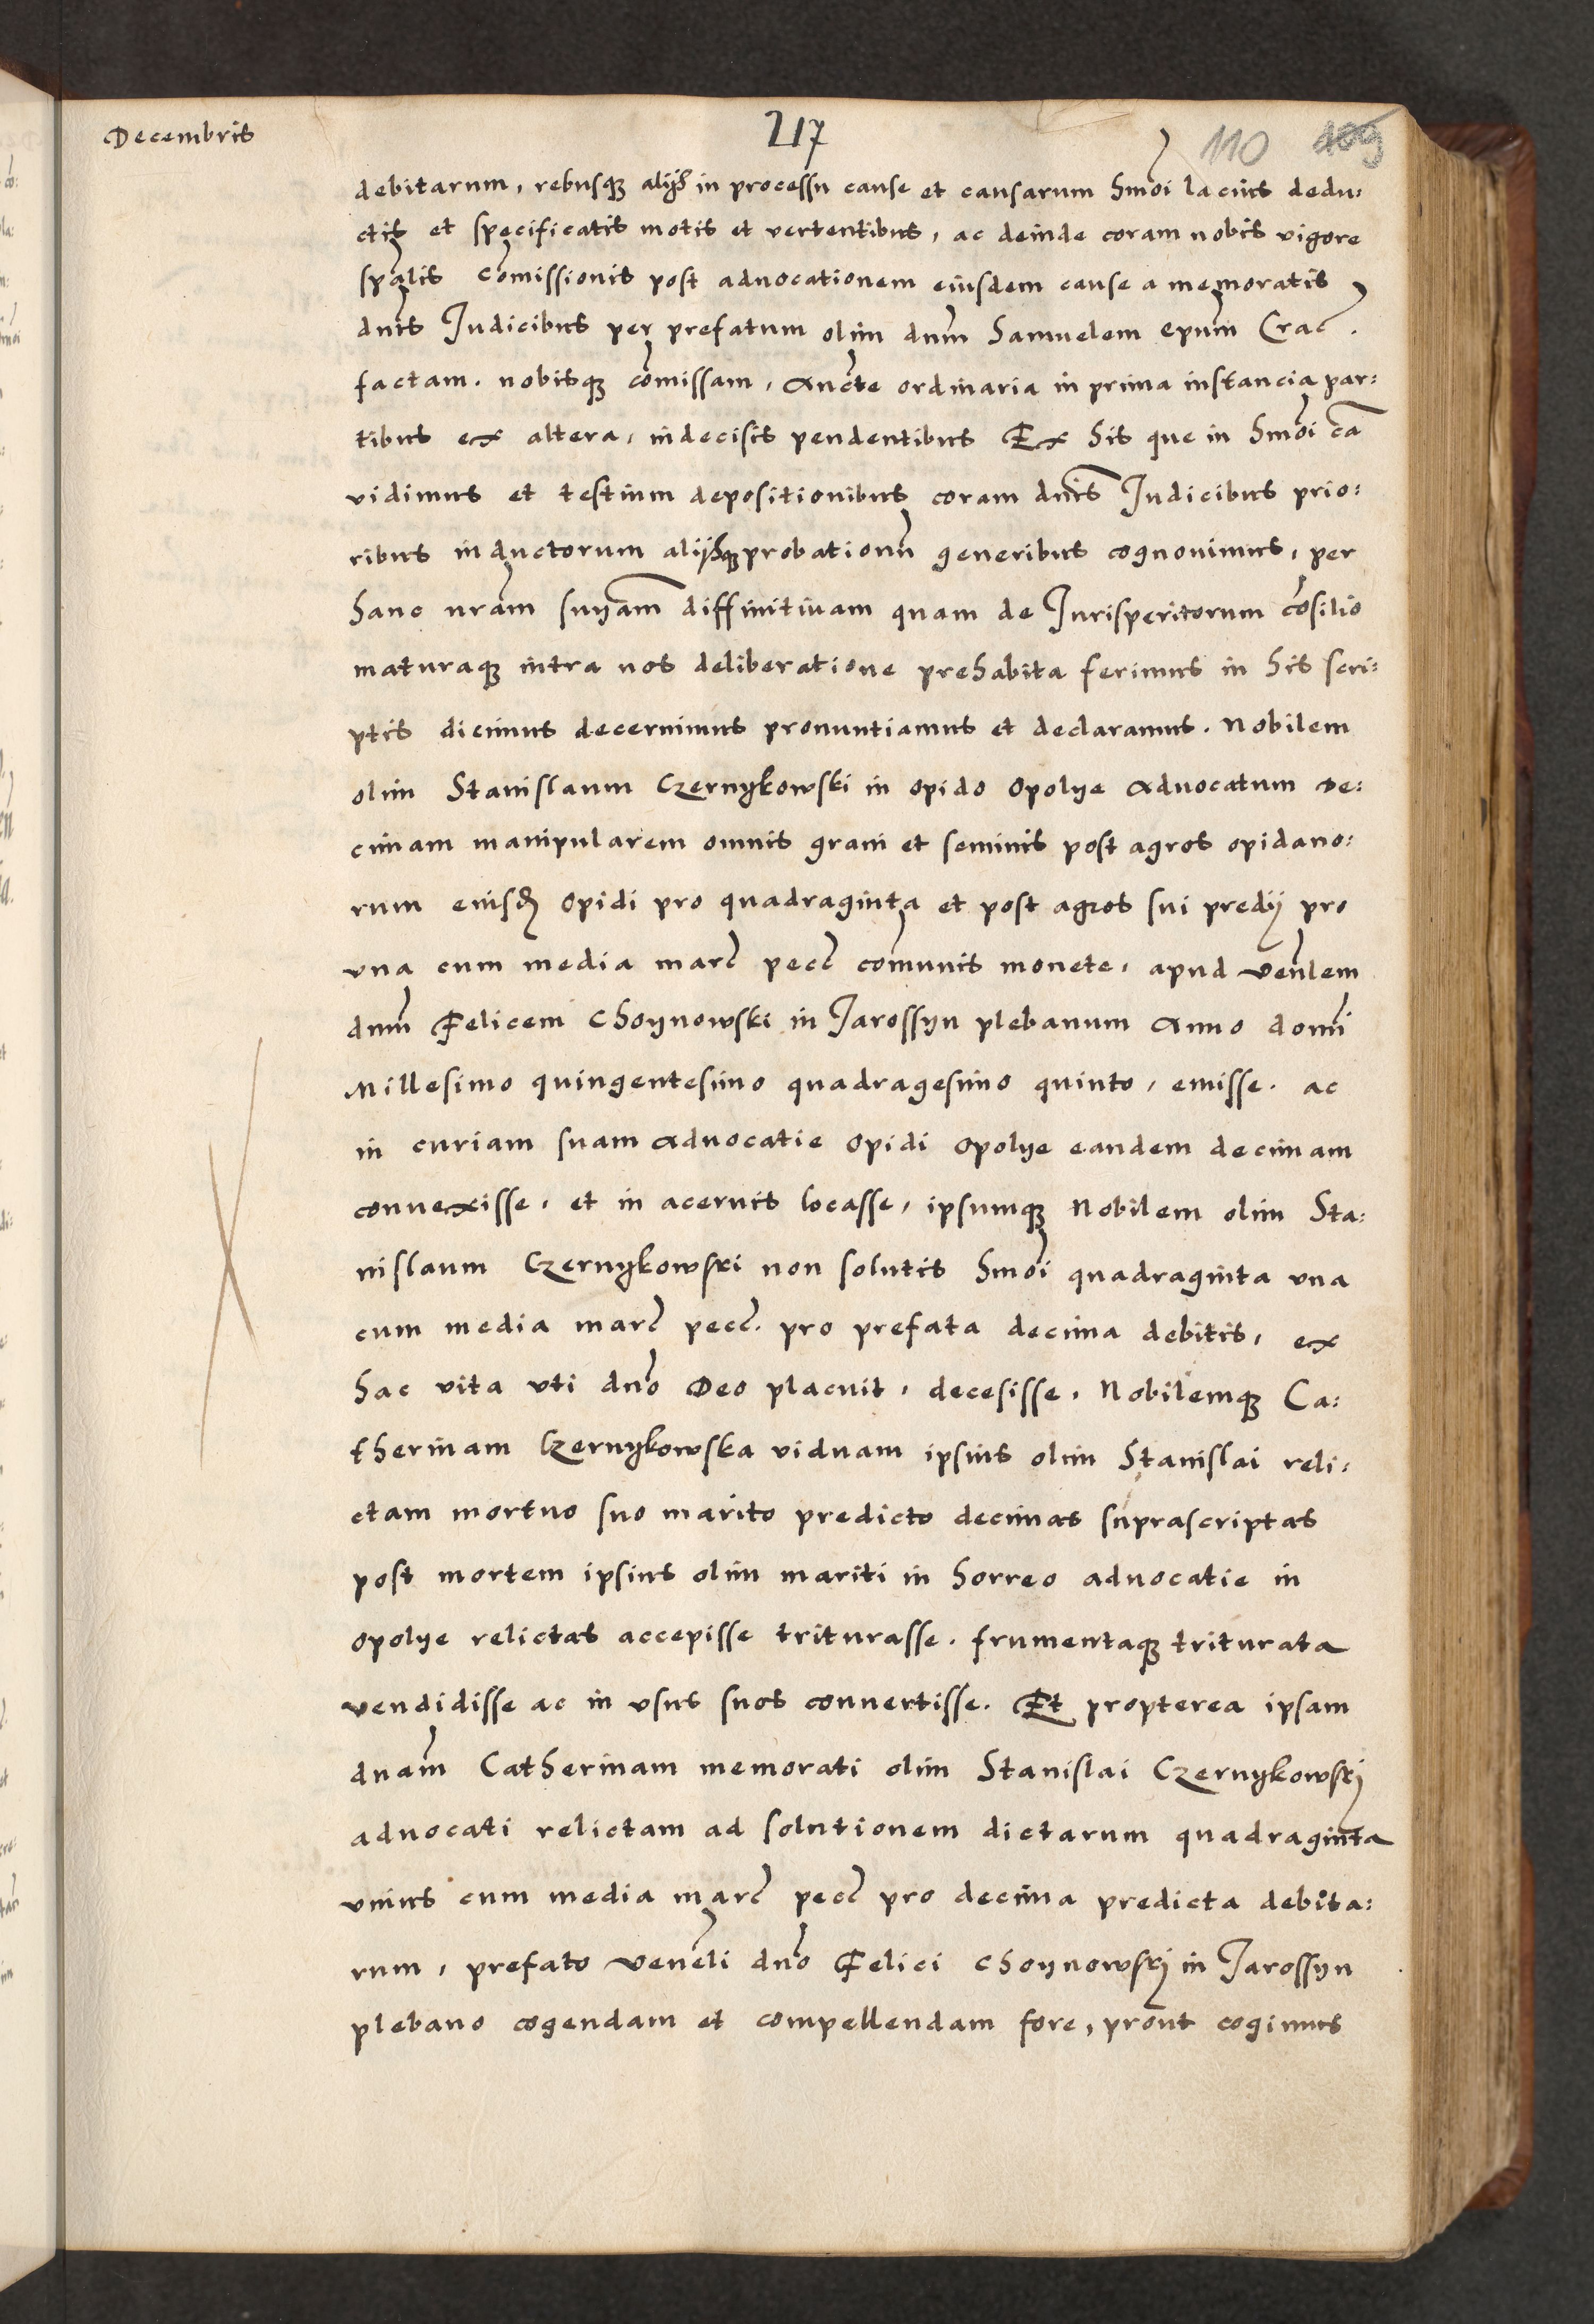 Decembris
217
110 109
debitarum, rebusq₃ alijs in processu cause et causarum hmoi lacius dedu:
ctis et specificatis motis et vertentibus, ac deinde coram nobis vigore
spalis comissionis post advocationem eiusdem cause a memoratis
dnis Iudicibus per prefatum olim dnm Samuelem epum Crac.
factam. nobisq₃ comissam, aucte ordinaria in prima instancia par:
tibus ex altera, indecisis pendentibus Ex his que in hmoi ca
vidimus et testium depositionibus coram dnis Iudicibus prio:
ribus inductorum alijsq₃ probationu generibus cognouimus, per
hanc nram snyam diffinitiuam quam de Iurisperitorum cosilio
maturaq₃ intra nos deliberatione prehabita ferimus in his scri:
ptis dicimus decernimus pronuntiamus et declaramus. Nobilem
olim Stanislaum Czernykowski in opido Opolye aduocatum de:
cimam manipularem omnis grani et seminis post agros opidano:
rum eiusd opidi pro quadraginta et post agros sui predij pro
vna cum media marc pecc comunis monete, apud venlem
dnm Felicem Choynowski in Jarossyn plebanum Anno domi
Millesimo quingentesimo quadragesimo quinto, emisse. ac
in curiam suam aduocatie opidi Opolye eandem decimam
conuexisse, et in aceruis locasse, ipsumq₃ Nobilem olim Sta:
nislaum Czernykowski non solutis hmoi quadraginta vna
cum media marc pecc. pro prefata decima debitis, ex
hac vita vti dno Deo placuit, decesisse, Nobilemq₃ Ca:
therinam Czernykowska viduam ipsius olim Stanislai reli:
ctam mortuo suo marito predicto decimas suprascriptas
post mortem ipsius olim mariti in horreo aduocatie in
Opolye relictas accepisse triturasse. frumentaq₃ triturata
vendidisse ac in vsus suos conuertisse. Et propterea ipsam
dnam Catherinam memorati olim Stanislai Czernykowskj
aduocati relictam ad solutionem dictarum quadraginta
vnius cum media marc pecc pro decima predicta debita:
rum, prefato veneli dno Felici Choynowskj in Jarossyn
plebano cogendam et compellendam fore, prout cogimus